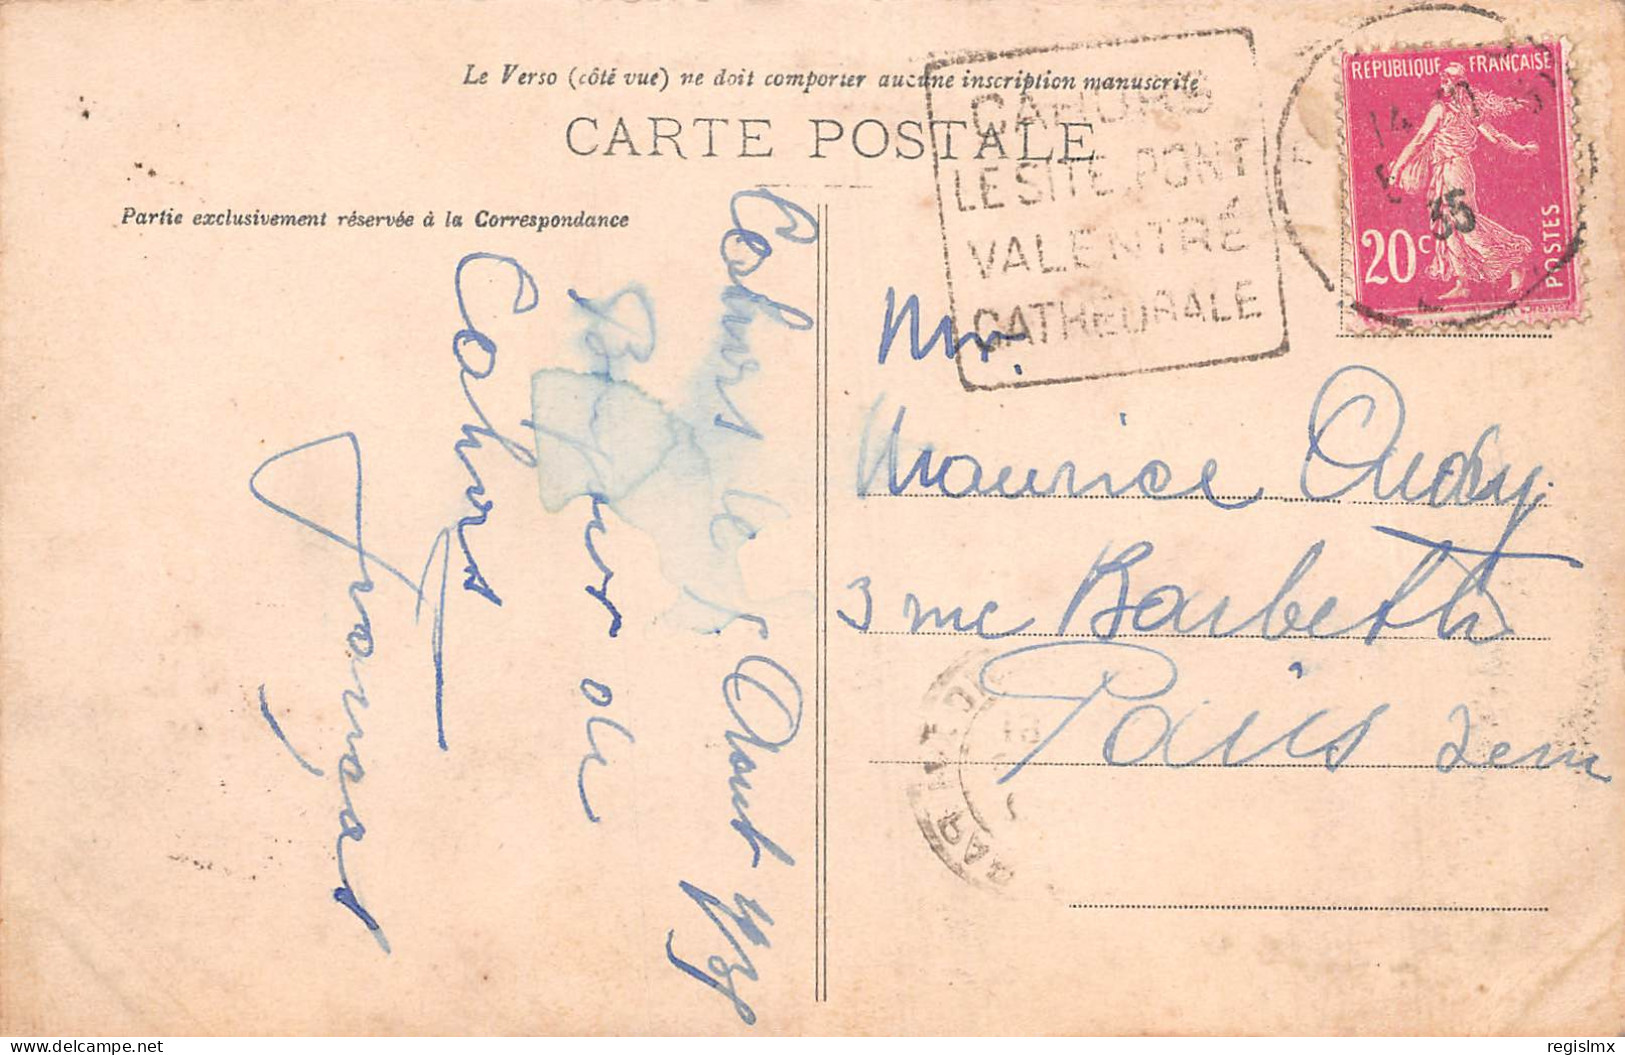 Le Verso (côté vue) ne doit comporter aucune inscription manuscrite
CARTE POSTALE
Partie exclusivement réservée à la Correspondance
CAHORS
LE SITE.PONT
VALENTRÉ
CATHEDRALE
REPUBLIQUE FRANÇAISE
20c
POSTES
14
35
Cahors le 5 Aout
Bonjour de
Cahors
Mr.
Maurice Oudry.
3 rue Barbette
Paris 3em
delcampe.net
regislmx